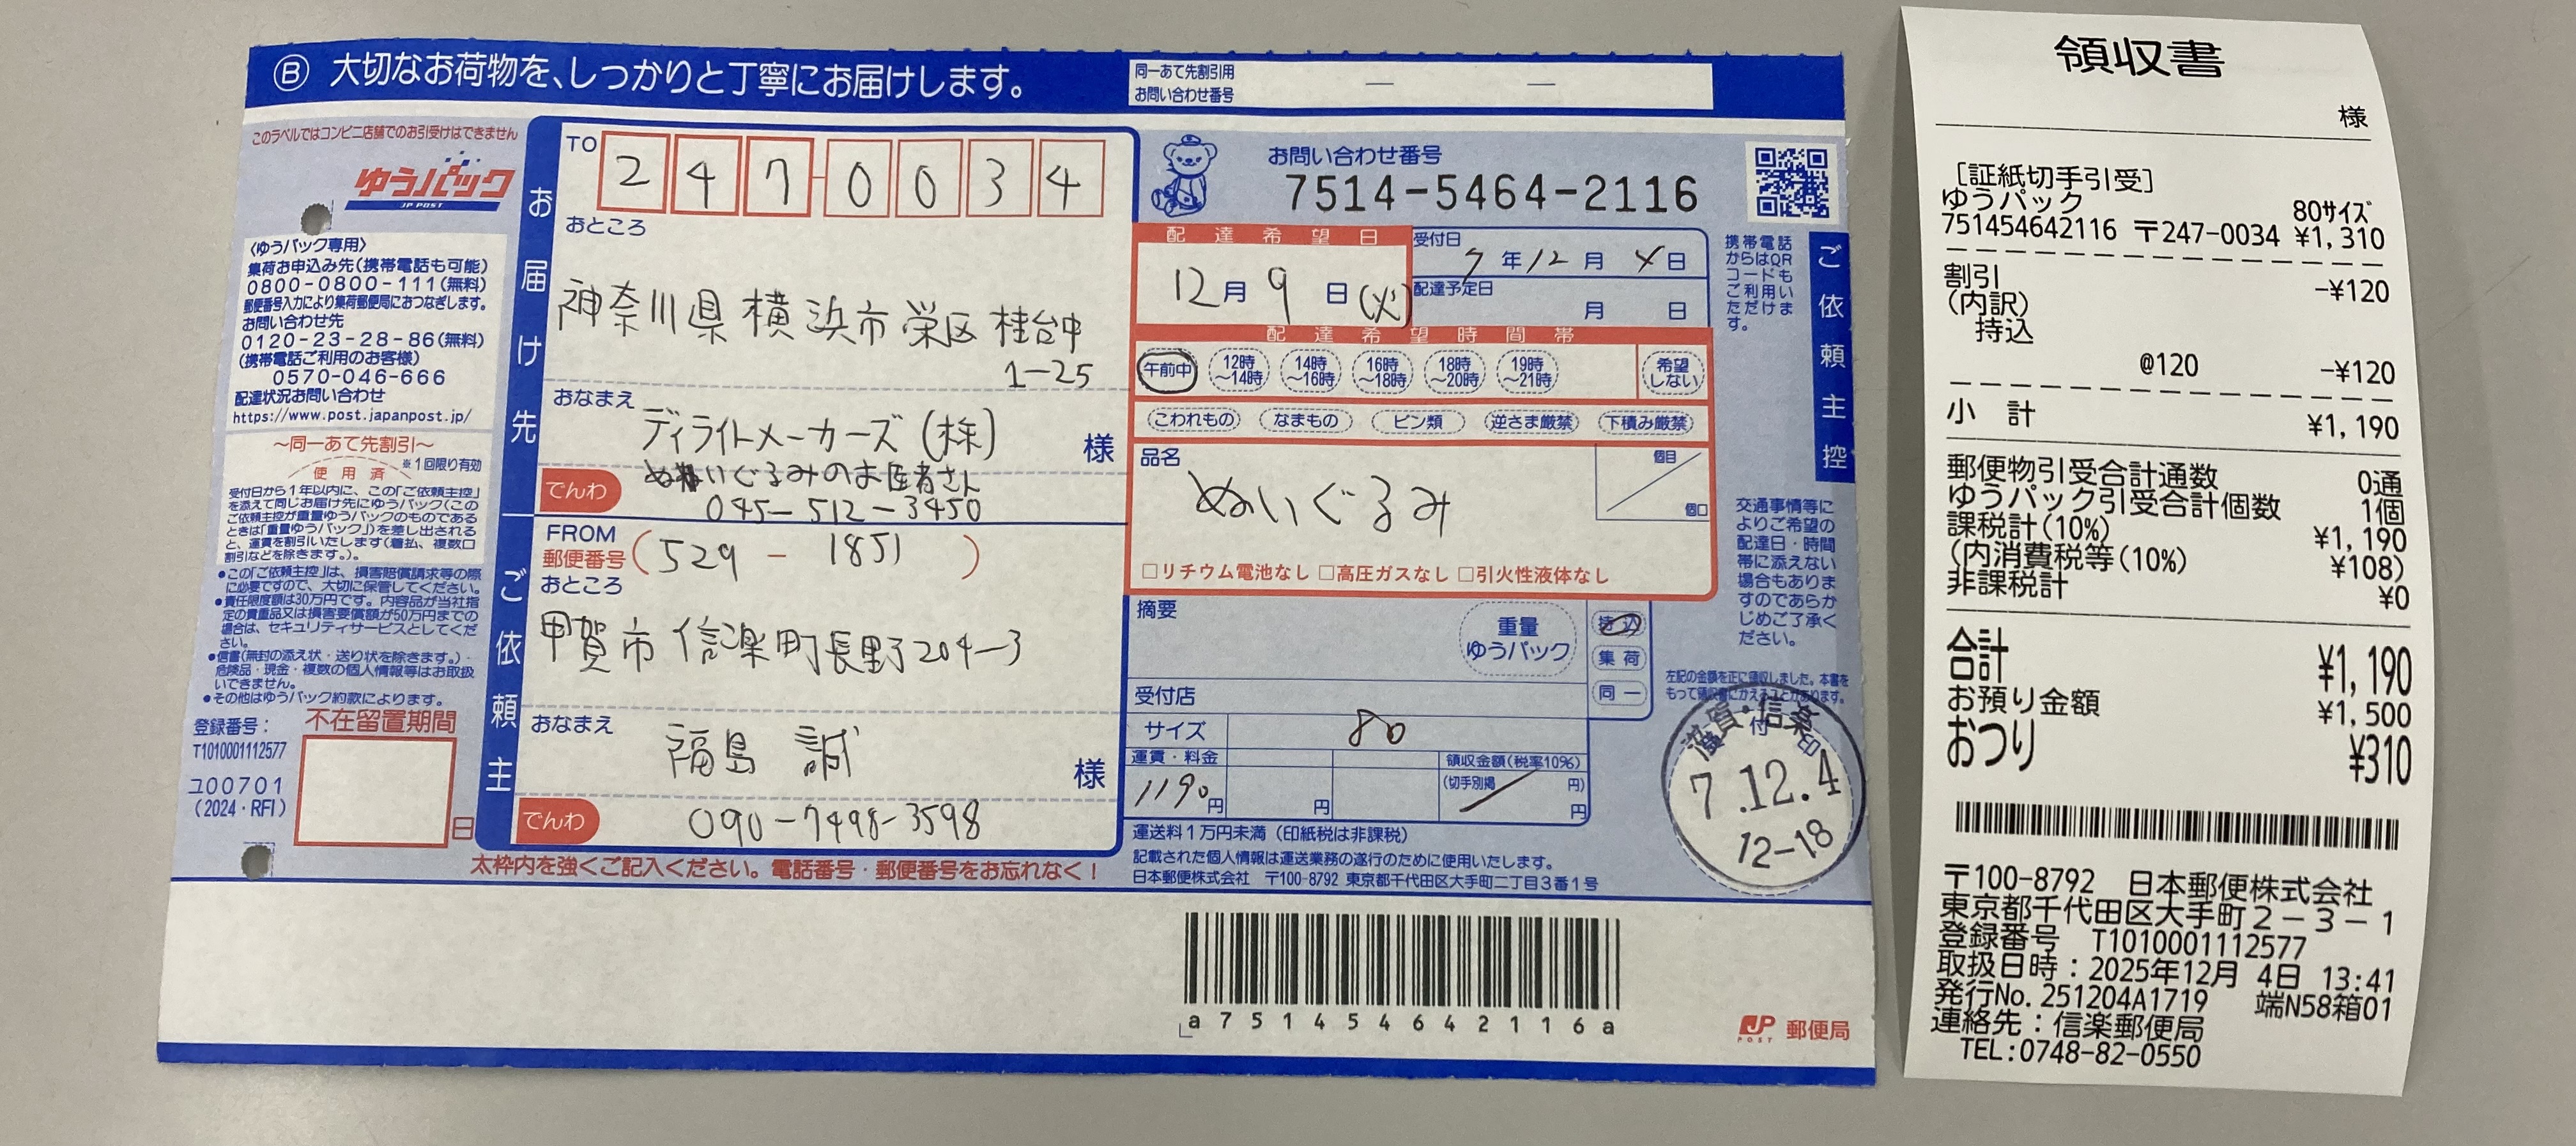 Ⓑ 大切なお荷物を、しっかりと丁寧にお届けします。
同一あて先割引用
お問い合わせ番号
— —
このラベルではコンビニ店舗でのお引受けはできません
ゆうパック
JP POST
〈ゆうパック専用〉
集荷お申込み先(携帯電話も可能)
0800-0800-111(無料)
郵便番号入力により集荷郵便局におつなぎします。
お問い合わせ先
0120-23-28-86(無料)
(携帯電話ご利用のお客様)
0570-046-666
配達状況お問い合わせ
https://www.post.japanpost.jp/
～同一あて先割引～
使用済
※1回限り有効
受付日から1年以内に、この「ご依頼主控」
を添えて同じお届け先にゆうパック(この
ご依頼主控が重量ゆうパックのものである
ときは「重量ゆうパック」)を差し出される
と、運賃を割引いたします(着払、複数口
割引などを除きます。)。
●この「ご依頼主控」は、損害賠償請求等の際
に必要ですので、大切に保管してください。
●責任限度額は30万円です。内容品が当社指
定の貴重品又は損害要償額が50万円までの
場合は、セキュリティサービスとしてくだ
さい。
●信書(無封の添え状・送り状を除きます。)・
危険品・現金・複数の個人情報等はお取扱
いできません。
●その他はゆうパック約款によります。
登録番号：
T1010001112577
ユ00701
(2024・RFI)
不在留置期間
日
お届け先
TO 247-0034
おところ
神奈川県横浜市栄区桂台中
1-25
おなまえ
ディライトメーカーズ(株)
様
ぬいぐるみのお医者さん
でんわ
045-512-3450
ご依頼主
FROM
郵便番号(529-1851)
おところ
甲賀市信楽町長野204-3
おなまえ
福島 誠
様
でんわ
090-7498-3598
太枠内を強くご記入ください。電話番号・郵便番号をお忘れなく！
お問い合わせ番号
7514-5464-2116
配達希望日
12月9日(火)
受付日
7年12月4日
配達予定日
月 日
配達希望時間帯
午前中
12時～14時
14時～16時
16時～18時
18時～20時
19時～21時
希望しない
こわれもの なまもの ビン類 逆さま厳禁 下積み厳禁
品名
ぬいぐるみ
個目
個口
□リチウム電池なし □高圧ガスなし □引火性液体なし
摘要
重量
ゆうパック
持込
集荷
同一
受付店
サイズ
80
運賃・料金
1190円
円
領収金額(税率10%)
(切手別掲 円)
円
運送料1万円未満(印紙税は非課税)
記載された個人情報は運送業務の遂行のために使用いたします。
日本郵便株式会社 〒100-8792 東京都千代田区大手町二丁目3番1号
携帯電話
からはQR
コードも
ご利用い
ただけま
す。
ご依頼主控
交通事情等に
よりご希望の
配達日・時間
帯に添えない
場合もありま
すのであらか
じめご了承く
ださい。
左記の金額を正に領収しました。本書を
もって領収書にかえることがあります。
付
印
滋賀・信楽
7.12.4
12-18
a751454642116a
JP
POST
郵便局
領収書
様
[証紙切手引受]
ゆうパック 80サイズ
751454642116 〒247-0034 ¥1,310
割引 -¥120
(内訳)
持込
@120 -¥120
小 計 ¥1,190
郵便物引受合計通数 0通
ゆうパック引受合計個数 1個
課税計(10%) ¥1,190
(内消費税等(10%) ¥108)
非課税計 ¥0
合計 ¥1,190
お預り金額 ¥1,500
おつり ¥310
〒100-8792 日本郵便株式会社
東京都千代田区大手町2-3-1
登録番号 T1010001112577
取扱日時：2025年12月 4日 13:41
発行No.251204A1719 端N58箱01
連絡先：信楽郵便局
TEL:0748-82-0550